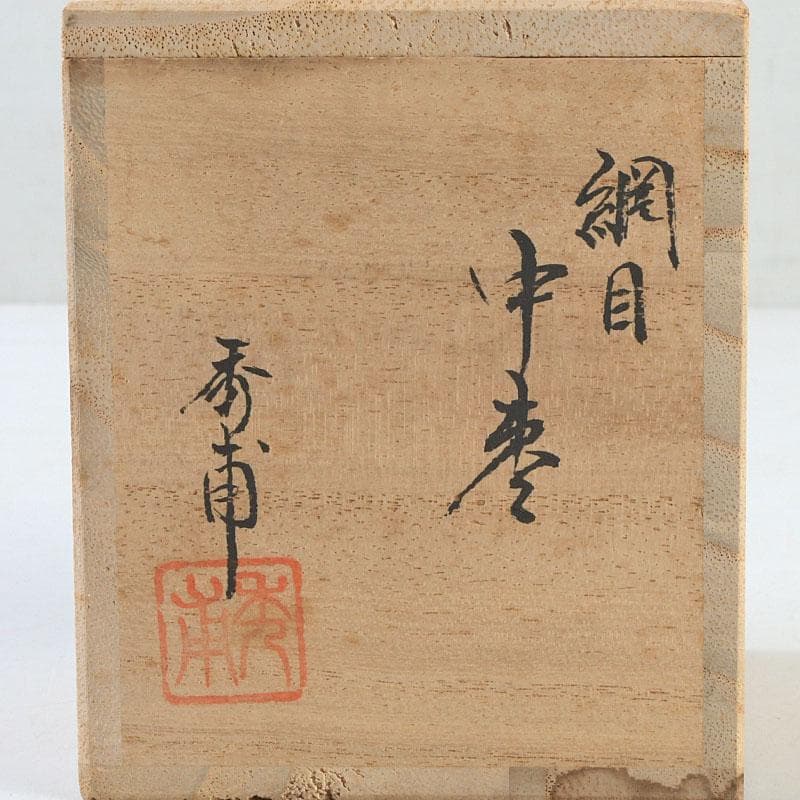 網目
中棗
秀甫
秀甫